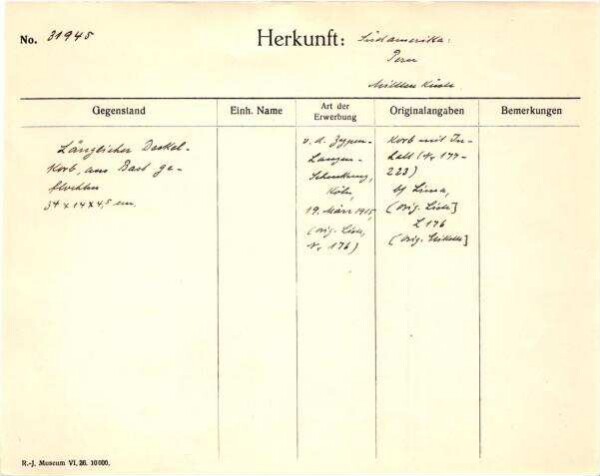 No. 31945
Herkunft: Südamerika:
Peru
Mittlere Küste
Gegenstand
Einh. Name
Art der
Erwerbung
Originalangaben
Bemerkungen
Länglicher Deckel-
korb, aus Bast ge-
flochten
34 x 14 x 4,5 cm.
v. d. Zypen-
Langen-
Schenkung,
Köln,
19. März 1915,
(Orig. Liste,
Nr. 176)
Korb mit In-
halt (Nr. 177-
223)
bf Lima,
(Orig. Liste]
L 176
(Orig. Etikette]
R.-J. Museum VI. 26. 10 000.